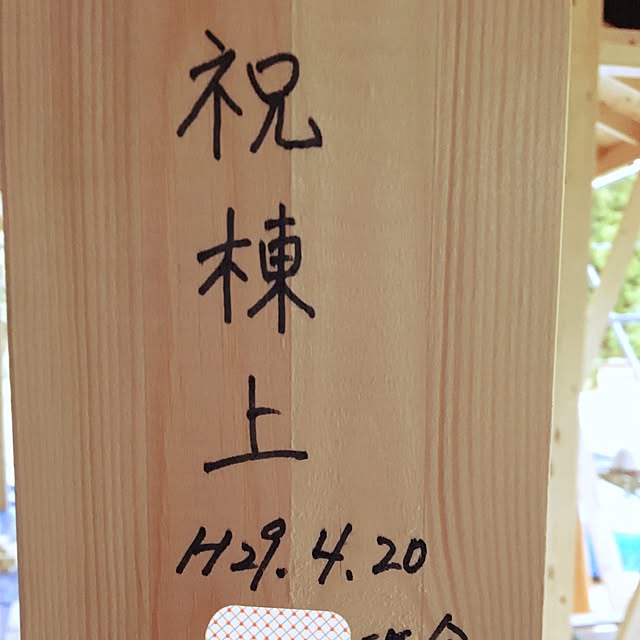 祝棟上
H29.4.20